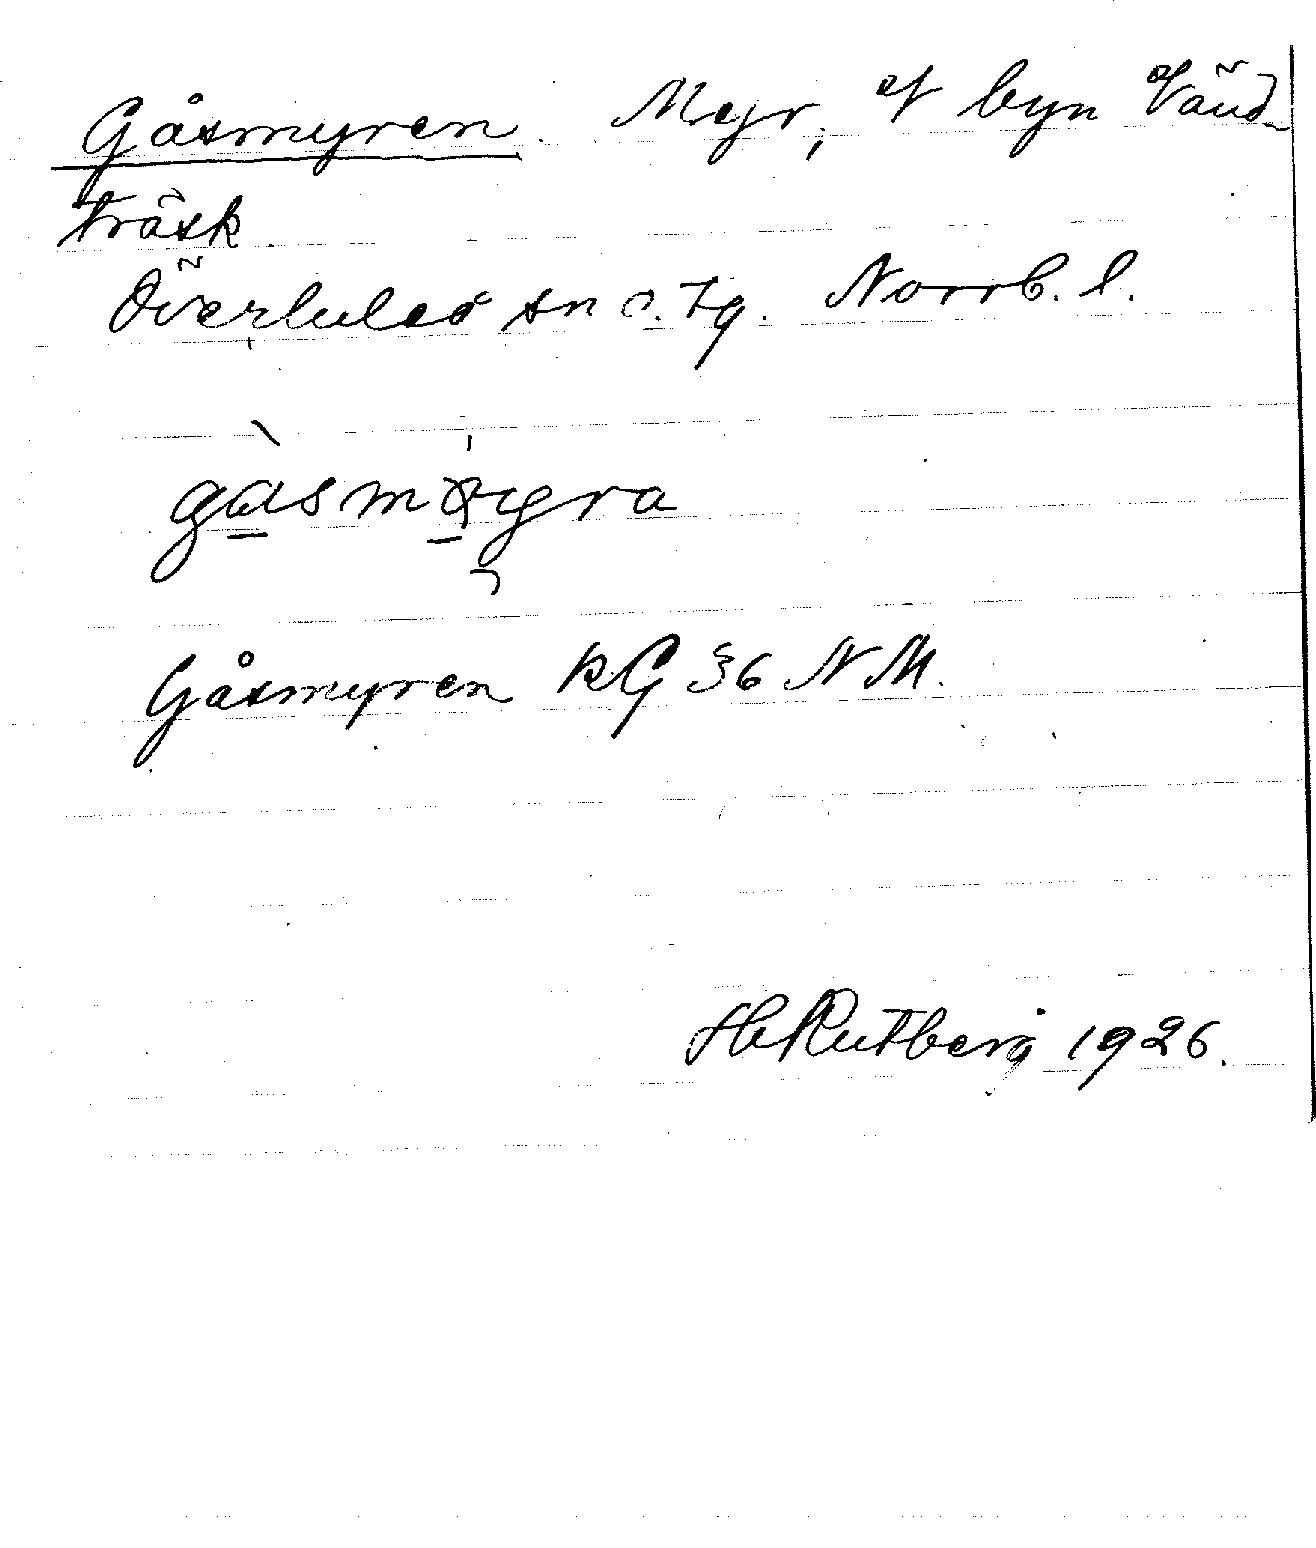 Gåsmyren. Myr, i byn Vänd-
träsk.
Överluleå sn o. tg. Norrb. l.
gàsmøyra
Gåsmyren KG 36 NM.
H Rutberg 1926.